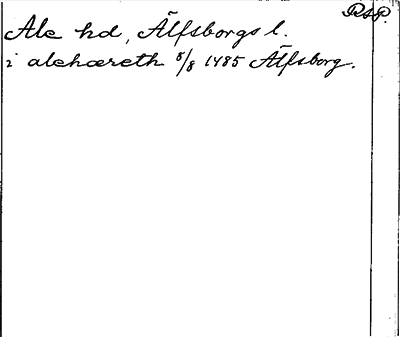 RSP.
Ale hd, Älfsborgs l.
i alehæreth 8/8 1485 Älfsborg.